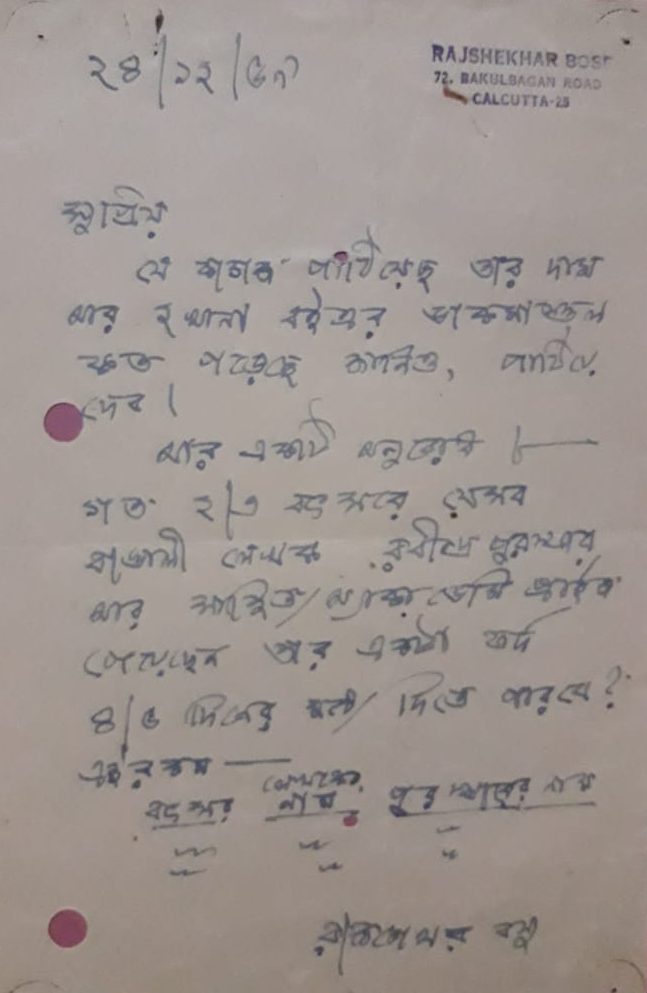 ২৪/১২/৫৭
RAJSHEKHAR BOSE
72. BAKULBAGAN ROAD
CALCUTTA-25
সুপ্রিয়
যে কাগজ পাঠিয়েছ তার দাম
আর ২ খানা বইএর ডাকমাশুল
কত পড়েছে জানিও, পাঠিয়ে
দেব।
আর একটি অনুরোধ।—
গত ২/৩ বৎসরে যেসব
বাঙালী লেখক রবীন্দ্র পুরস্কার
আর সাহিত্য অ্যাকাডেমি প্রাইজ
পেয়েছেন তার একটা ফর্দ
৪/৫ দিনের মধ্যে দিতে পারবে?
এইরকম —
বৎসর লেখকের নাম পুরস্কারের নাম
রাজশেখর বসু